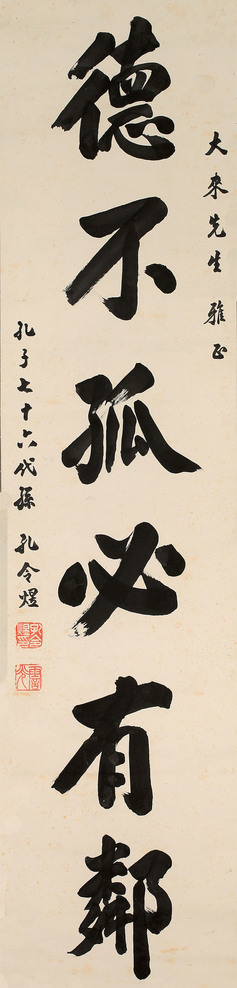 大來先生 雅正
德不孤必有鄰
孔子七十六代孫 孔令煜